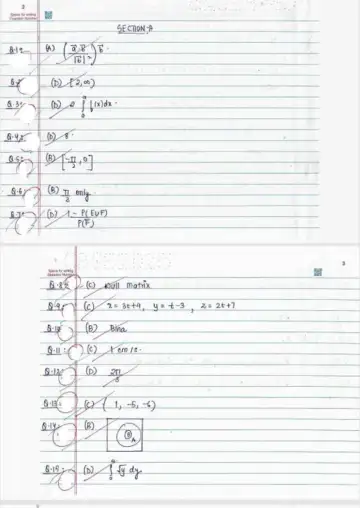 2
Space for writing
Question Number
SECTION-A
Q.1 (A) (a⃗.b⃗ / |b⃗|²) b⃗.
Q.2 (D) [2,∞)
(D) 2 ∫ f(x)dx.
Q.4 (D)
Q.5: (B) [-π/2, 0]
Q.6: (B) π/2 only.
Q.7: (D) 1 - P(E∪F) / P(F̅)
Space for writing
Question Number
3
Q.8 (C) Null matrix
Q.9 (C) x = 3t+4, y = t-3, z = 2t+7
Q.10 (B)
Q.11: (C) 1 cm/s.
Q.12: (D)
Q.13: (C) (1, -5, -6)
Q.14: (B)
B A
Q.15: (D) ∫ √y dy.